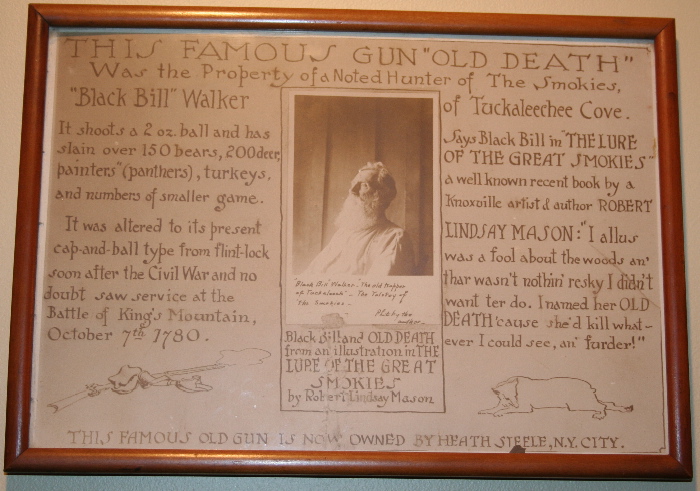 THIS FAMOUS GUN "OLD DEATH"
Was the Property of a Noted Hunter of The Smokies,
"Black Bill" Walker
of Tuckaleechee Cove.
It shoots a 2 oz. ball and has
slain over 150 bears, 200 deer,
painters" (panthers), turkeys,
and numbers of smaller game.
It was altered to its present
cap-and-ball type from flint-lock
soon after the Civil War and no
doubt saw service at the
Battle of King's Mountain,
October 7th 1780.
"Black Bill" Walker - The old
of Tuckaleech" - The Tolstoy of
The Smokies -
Photo by the
author.
Black Bill and OLD DEATH
from an illustration in THE
LURE OF THE GREAT
SMOKIES
by Robert Lindsay Mason
Says Black Bill in "THE LURE
OF THE GREAT SMOKIES"
a well known recent book by a
Knoxville artist & author ROBERT
LINDSAY MASON: "I allus
was a fool about the woods an'
thar wasn't nothin' resky I didn't
want ter do. I named her OLD
DEATH 'cause she'd kill what-
ever I could see, an' furder!"
THIS FAMOUS OLD GUN IS NOW OWNED BY HEATH STEELE, N.Y. CITY.